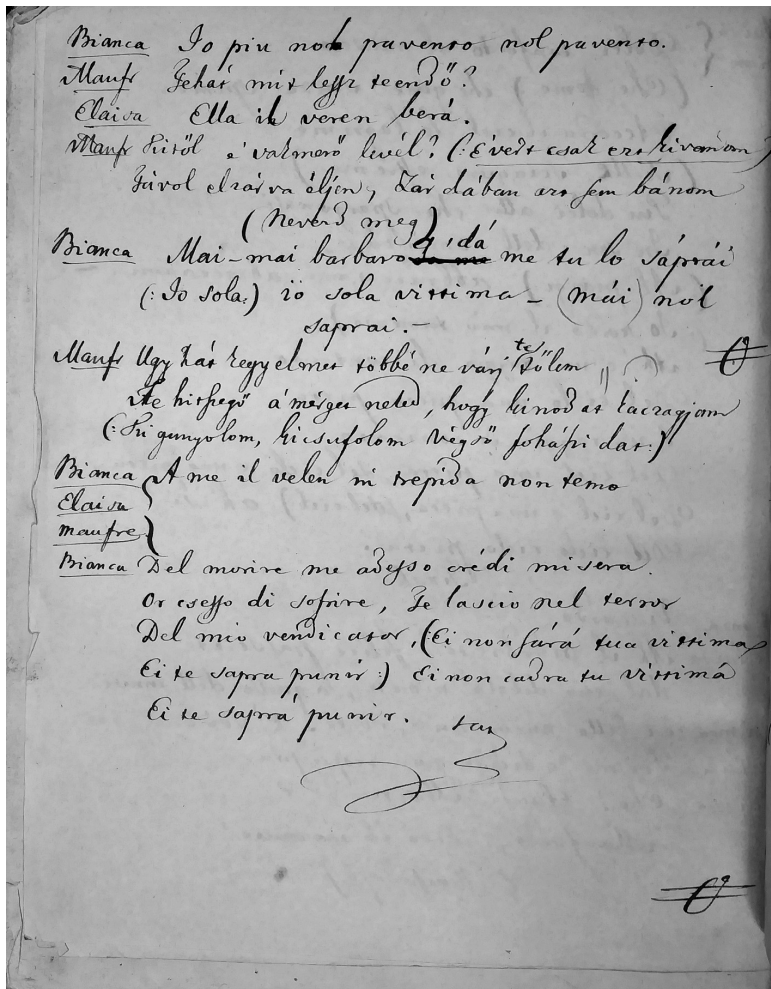 Bianca Io piu nol pavento nol pavento.
Manfr Tehát mit lessz teendő?
Elaisa Ella il veren berá.
Manfr Kitől e' vakmerő levél? (: É vért csak ezt kivánom)
Távol elzárva éljen, Zárdában azt sem bánom
(Neverd meg)
Bianca Mai – mai barbaro dá me tu lo sáprái
(: Io sola :) io sola vittima – (mái) nol
saprai. –
Manfr Ugy hát kegyelmet többé ne várj től
te hitszegő á mérget neked, hogy kinodat kaczagjam
(: Ki gunyolom, kicsufolom végső fohászidat :)
Bianca A me il velen intrepida non temo
Elaisa
Manfre
Bianca Del morire me adesso crédi misera.
Or csesso di sofrire, Te lascio nel terror
Del mio vendicator, (: Ei non sárá tua vittima
Ei te sapra punir :) Ei non cadra tu vittimá
Ei te saprá punir.